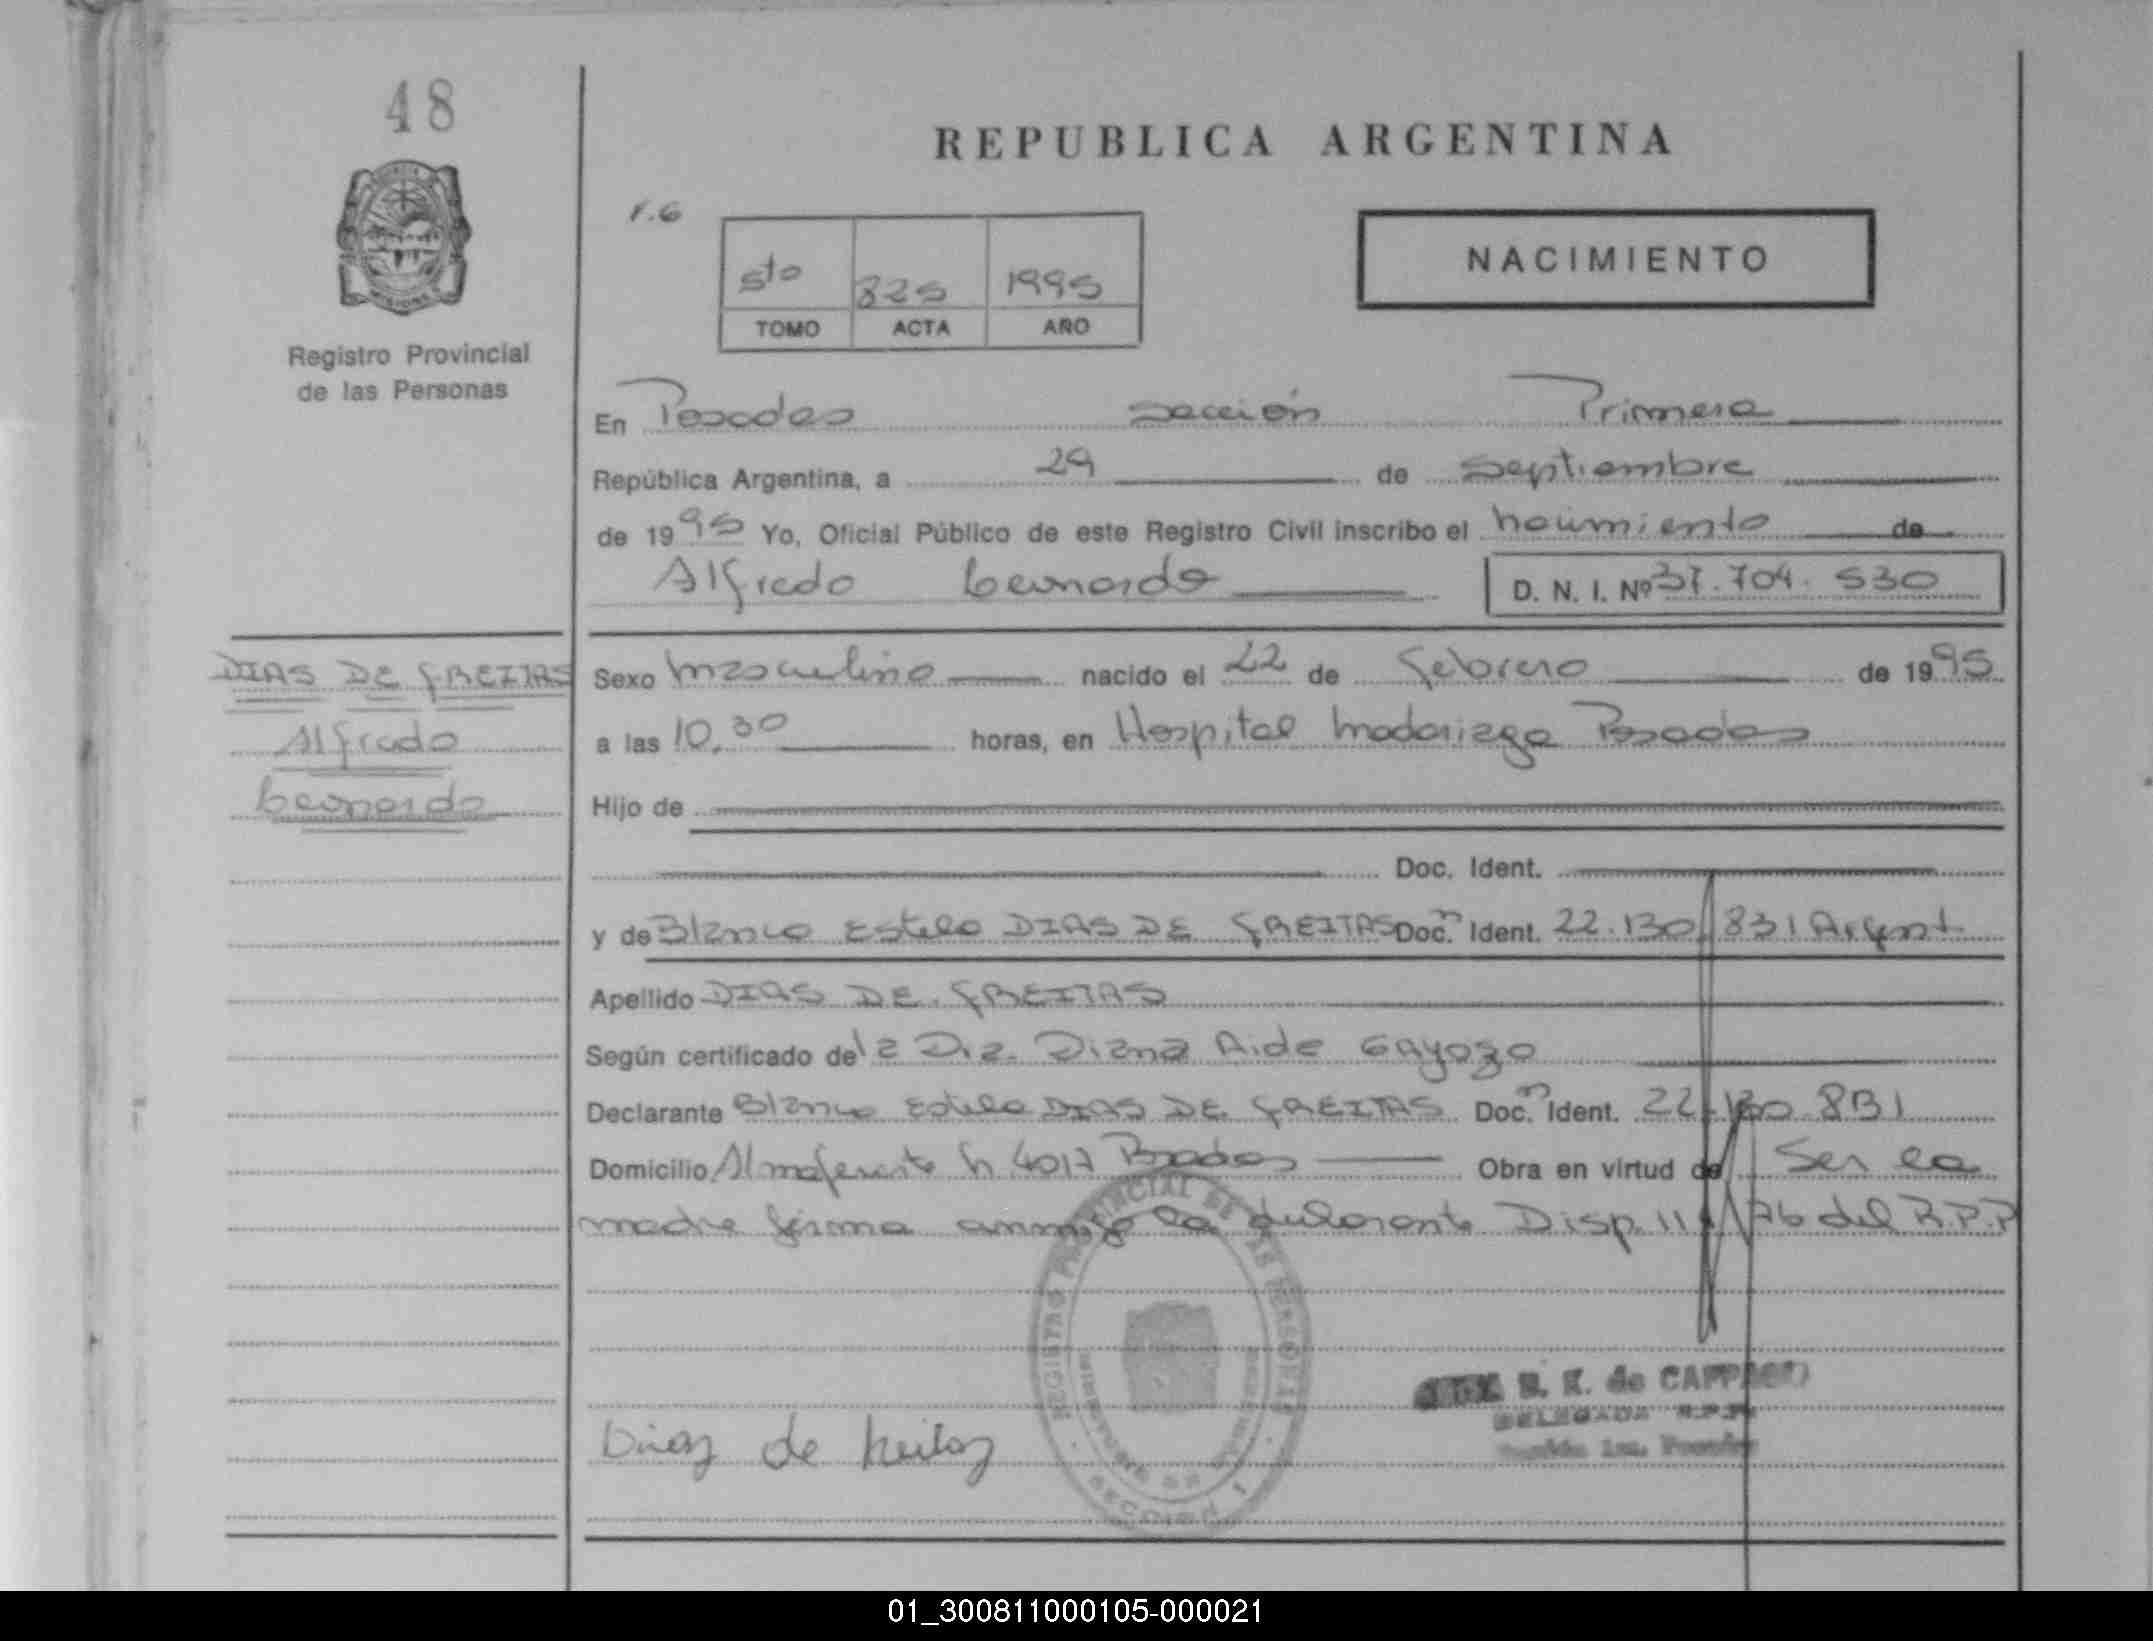 48
REPUBLICA ARGENTINA
NACIMIENTO
5to 825 1995
TOMO ACTA AÑO
Registro Provincial
de las Personas
En Posadas sección Primera
República Argentina, a 29 de Septiembre
de 1995 Yo, Oficial Público de este Registro Civil inscribo el nacimiento de
Alfredo Leonardo D. N. I. Nº 37.704.530
DIAS DE FREITAS
Alfredo
Leonardo
Sexo masculino nacido el 22 de febrero de 1995
a las 10,30 horas, en Hospital Madariaga Posadas
Hijo de
Doc. Ident.
y de Blanca Estela DIAS DE FREITAS Doc. Ident. 22.130.831 Argent
Apellido DIAS DE FREITAS
Según certificado de la Dra. Diana Aide Gayozo
Declarante Blanca Estela DIAS DE FREITAS Doc. Ident. 22.130.831
Domicilio Almafuerte 4017 Posadas Obra en virtud de Ser la
madre firma conmigo la declarante Disp. 11/76 del R.P.P
REGISTRO PROVINCIAL DE LAS PERSONAS
SECCION 1
R. K. de
DELEGADA R.P.P.
Sección 1ra. Posadas
01_300811000105-000021